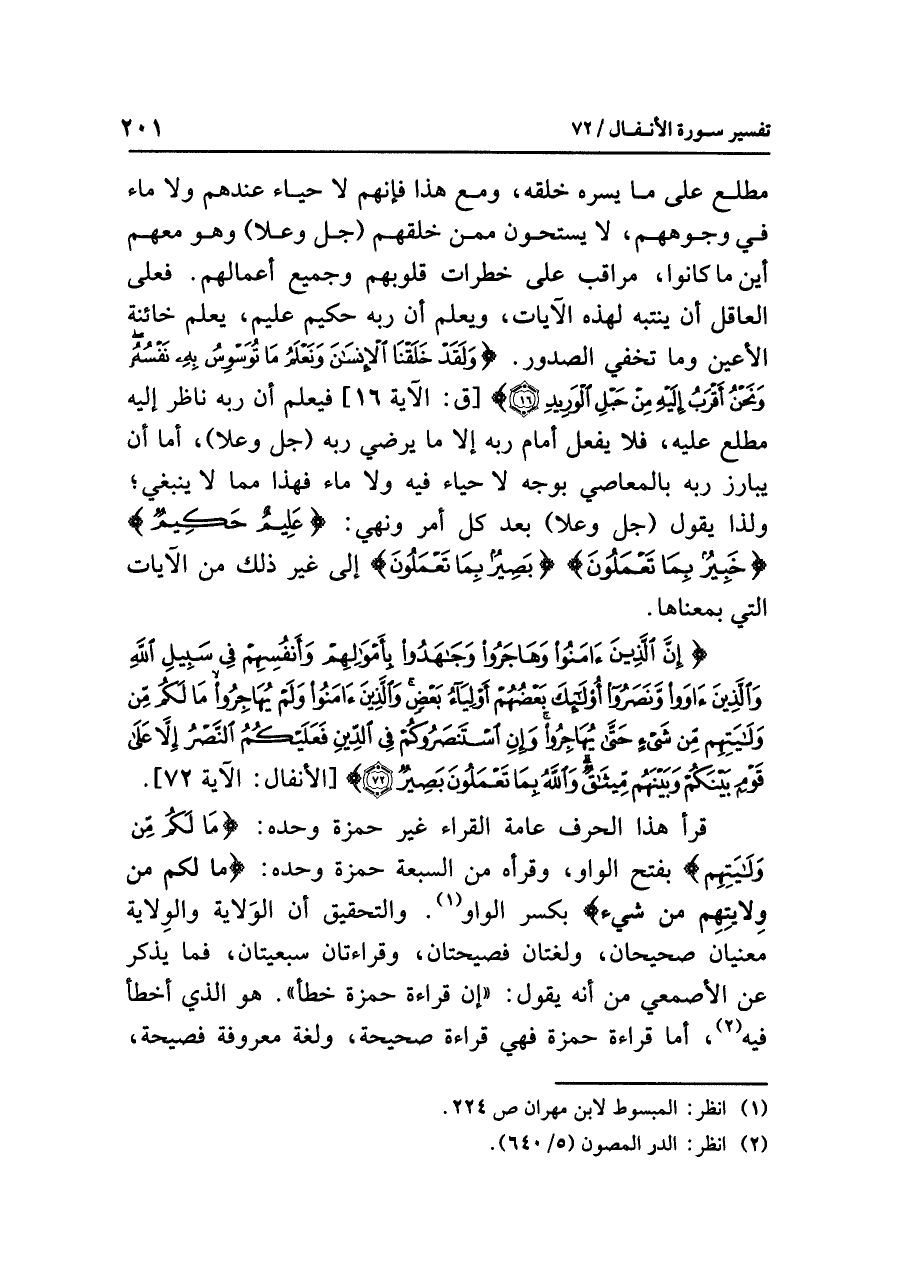 تفسير سورة الأنفال / ٧٢
٢٠١
مطلع على ما يسره خلقه، ومع هذا فإنهم لا حياء عندهم ولا ماء
في وجوههم، لا يستحون ممن خلقهم (جل وعلا) وهو معهم
أين ما كانوا، مراقب على خطرات قلوبهم وجميع أعمالهم. فعلى
العاقل أن ينتبه لهذه الآيات، ويعلم أن ربه حكيم عليم، يعلم خائنة
الأعين وما تخفي الصدور. ﴿وَلَقَدْ خَلَقْنَا ٱلْإِنسَٰنَ وَنَعْلَمُ مَا تُوَسْوِسُ بِهِۦ نَفْسُهُۥۖ
وَنَحْنُ أَقْرَبُ إِلَيْهِ مِنْ حَبْلِ ٱلْوَرِيدِ ١٦﴾ [ق: الآية ١٦] فيعلم أن ربه ناظر إليه
مطلع عليه، فلا يفعل أمام ربه إلا ما يرضي ربه (جل وعلا)، أما أن
يبارز ربه بالمعاصي بوجه لا حياء فيه ولا ماء فهذا مما لا ينبغي؛
ولذا يقول (جل وعلا) بعد كل أمر ونهي: ﴿عَلِيمٌ حَكِيمٌ﴾
﴿خَبِيرٌۢ بِمَا تَعْمَلُونَ﴾ ﴿بَصِيرٌۢ بِمَا تَعْمَلُونَ﴾ إلى غير ذلك من الآيات
التي بمعناها.
﴿إِنَّ ٱلَّذِينَ ءَامَنُوا۟ وَهَاجَرُوا۟ وَجَٰهَدُوا۟ بِأَمْوَٰلِهِمْ وَأَنفُسِهِمْ فِى سَبِيلِ ٱللَّهِ
وَٱلَّذِينَ ءَاوَوا۟ وَّنَصَرُوٓا۟ أُو۟لَٰٓئِكَ بَعْضُهُمْ أَوْلِيَآءُ بَعْضٍۚ وَٱلَّذِينَ ءَامَنُوا۟ وَلَمْ يُهَاجِرُوا۟ مَا لَكُم مِّن
وَلَٰيَتِهِم مِّن شَىْءٍ حَتَّىٰ يُهَاجِرُوا۟ۚ وَإِنِ ٱسْتَنصَرُوكُمْ فِى ٱلدِّينِ فَعَلَيْكُمُ ٱلنَّصْرُ إِلَّا عَلَىٰ
قَوْمٍۭ بَيْنَكُمْ وَبَيْنَهُم مِّيثَٰقٌۗ وَٱللَّهُ بِمَا تَعْمَلُونَ بَصِيرٌ ٧٢﴾ [الأنفال: الآية ٧٢].
قرأ هذا الحرف عامة القراء غير حمزة وحده: ﴿مَا لَكُم مِّن
وَلَٰيَتِهِم﴾ بفتح الواو، وقرأه من السبعة حمزة وحده: ﴿ما لكم من
وِلايتِهِم من شيء﴾ بكسر الواو(١). والتحقيق أن الوَلاية والوِلاية
معنيان صحيحان، ولغتان فصيحتان، وقراءتان سبعيتان، فما يذكر
عن الأصمعي من أنه يقول: «إن قراءة حمزة خطأ». هو الذي أخطأ
فيه(٢)، أما قراءة حمزة فهي قراءة صحيحة، ولغة معروفة فصيحة،
(١) انظر: المبسوط لابن مهران ص ٢٢٤.
(٢) انظر: الدر المصون (٥/ ٦٤٠).